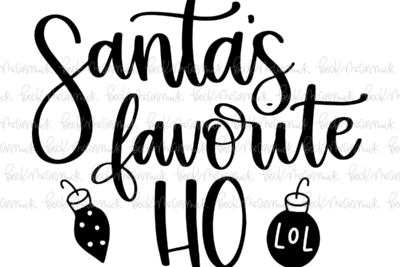 Santa's
favorite
HO
LOL